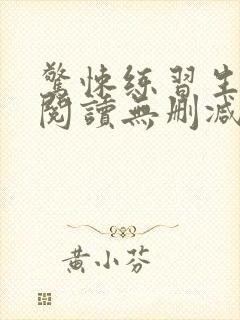 驚悚練習生
閱讀無刪減
黃小芬